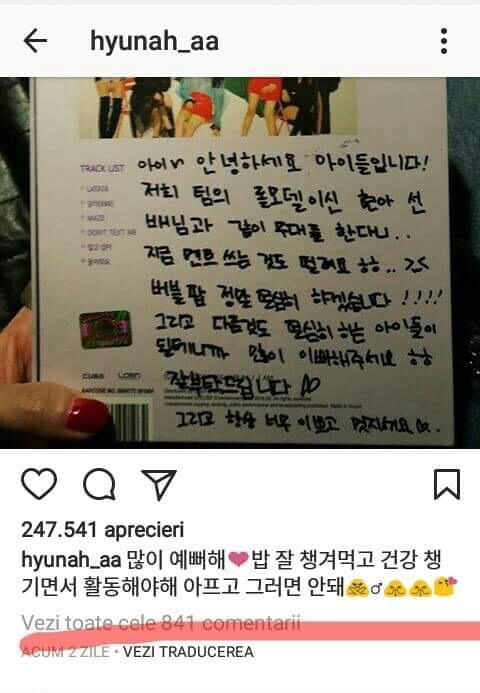 hyunah_aa
TRACK LIST
LATATA
MAZE
DON'T TEXT ME
아이누 안녕하세요 아이들입니다!
저희 팀의 롤모델이신 현아 선
배님과 같이 무대를 한다니..
지금 멘트 쓰는 것도 떨려요 ㅎㅎ..
버블 팝 정말 열심히 하겠습니다!!!!
그리고 다른것도 열심히 하는 아이들이
될테니까 많이 이뻐해주세요 ㅎㅎ
잘부탁드립니다 ♡
그리고 항상 너무 이쁘고 멋지세요.
CUBE
247.541 aprecieri
hyunah_aa 많이 예뻐해❤밥 잘 챙겨먹고 건강 챙
기면서 활동해야해 아프고 그러면 안돼🙅‍♂️🙏🙏😘
Vezi toate cele 841 comentarii
ACUM 2 ZILE • VEZI TRADUCEREA